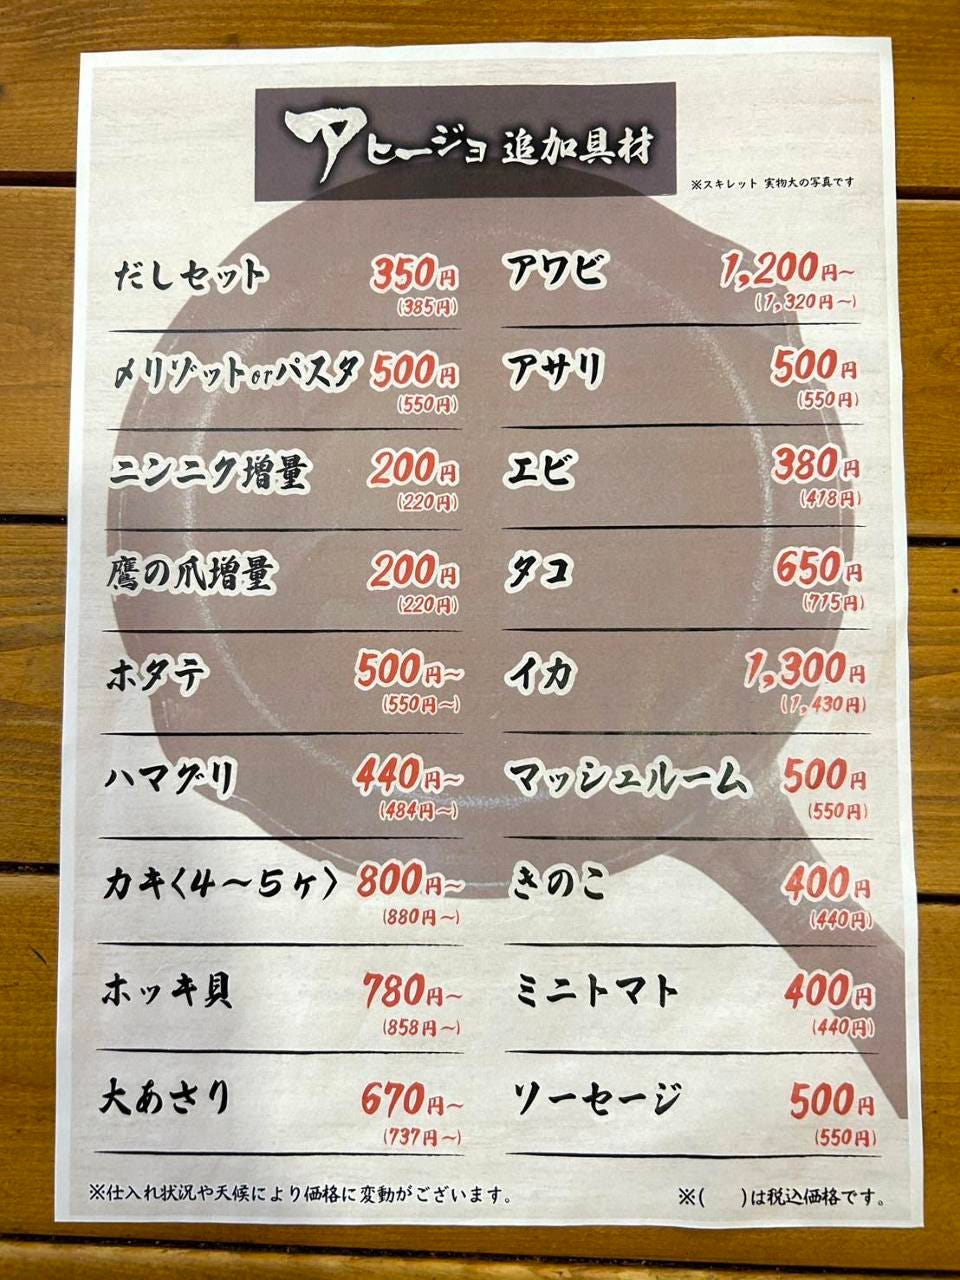 アヒージョ 追加具材
※スキレット 実物大の写真です
だしセット 350円
(385円)
〆リゾットorパスタ 500円
(550円)
ニンニク増量 200円
(220円)
鷹の爪増量 200円
(220円)
ホタテ 500円~
(550円~)
ハマグリ 440円~
(484円~)
カキ〈4~5ヶ〉 800円~
(880円~)
ホッキ貝 780円~
(858円~)
大あさり 670円~
(737円~)
アワビ 1,200円~
(1,320円~)
アサリ 500円
(550円)
エビ 380円
(418円)
タコ 650円
(715円)
イカ 1,300円
(1,430円)
マッシュルーム 500円
(550円)
きのこ 400円
(440円)
ミニトマト 400円
(440円)
ソーセージ 500円
(550円)
※仕入れ状況や天候により価格に変動がございます。
※( )は税込価格です。